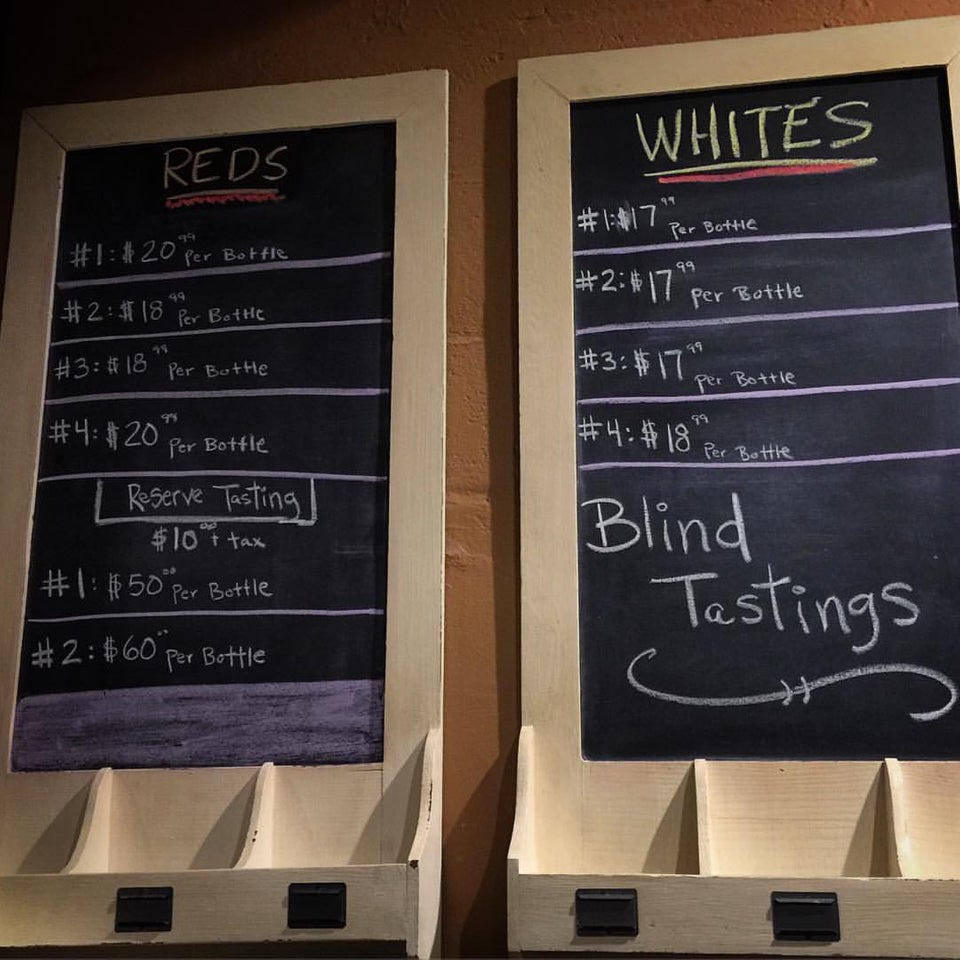 REDS
#1: $20.99 Per Bottle
#2: $18.99 Per Bottle
#3: $18.99 Per Bottle
#4: $20.99 Per Bottle
Reserve Tasting
$10.00 + tax
#1: $50.00 Per Bottle
#2: $60.00 Per Bottle
WHITES
#1: $17.99 Per Bottle
#2: $17.99 Per Bottle
#3: $17.99 Per Bottle
#4: $18.99 Per Bottle
Blind
Tastings